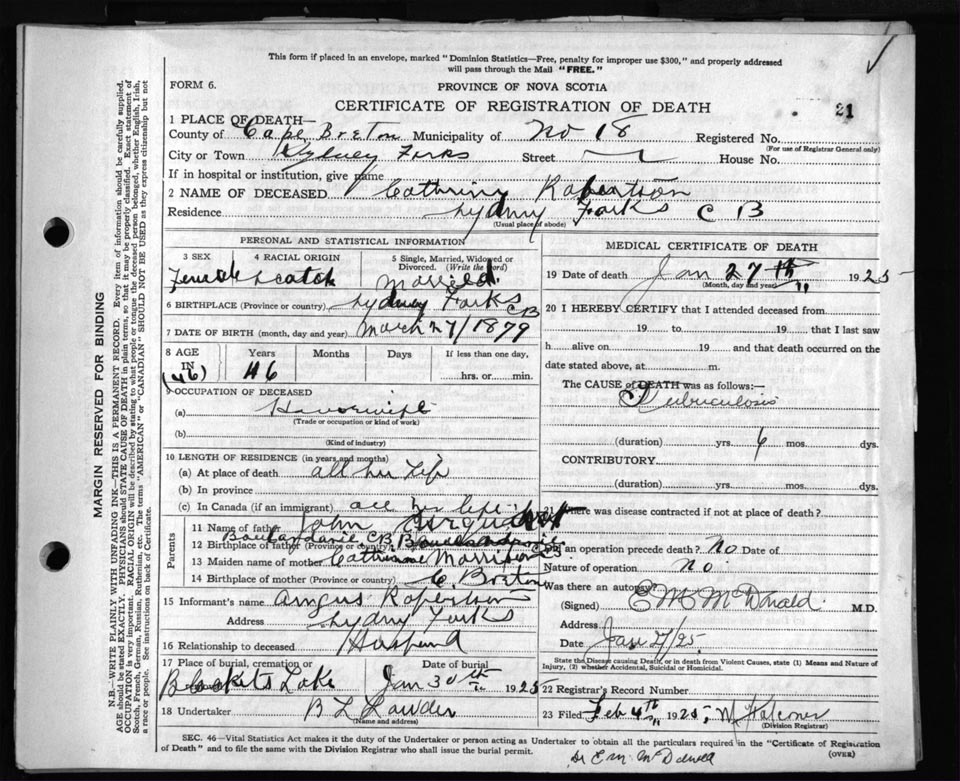 This form if placed in an envelope, marked "Dominion Statistics—Free, penalty for improper use $300," and properly addressed
will pass through the Mail "FREE."
FORM 6.
PROVINCE OF NOVA SCOTIA
CERTIFICATE OF REGISTRATION OF DEATH
21
1 PLACE OF DEATH—
County of Cape Breton Municipality of No 18 Registered No.
(For use of Registrar General only)
City or Town Sydney Forks Street House No.
If in hospital or institution, give name
2 NAME OF DECEASED Cathrine Robertson
Residence Sydney Forks C B
(Usual place of abode)
PERSONAL AND STATISTICAL INFORMATION
3 SEX 4 RACIAL ORIGIN 5 Single, Married, Widowed or
Divorced. (Write the word)
Female Scotch Married
6 BIRTHPLACE (Province or country) Sydney Forks CB
7 DATE OF BIRTH (month, day and year) March 27/1879
8 AGE IN Years Months Days If less than one day,
(46) 46 hrs. or min.
9 OCCUPATION OF DECEASED
(a) Housewife
(Trade or occupation or kind of work)
(b)
(Kind of industry)
10 LENGTH OF RESIDENCE (in years and months)
(a) At place of death all her life
(b) In province
(c) In Canada (if an immigrant) all her life
Parents
11 Name of father John
12 Birthplace of father (Province or country) Boulardarie CB
13 Maiden name of mother Cathrine Morrison
14 Birthplace of mother (Province or country) C. Breton
15 Informant's name Angus Robertson
Address Sydney Forks
16 Relationship to deceased Husband
17 Place of burial, cremation or Date of burial
Blackets Lake Jan 30th 1925
18 Undertaker B L Lauder
(Name and address)
MEDICAL CERTIFICATE OF DEATH
19 Date of death Jan 27th 1925
(Month, day and year)
20 I HEREBY CERTIFY that I attended deceased from
19 to 19 that I last saw
h alive on 19 and that death occurred on the
date stated above, at m.
The CAUSE of DEATH was as follows:—
Tuburculosis
(duration) yrs. 6 mos. dys.
CONTRIBUTORY
(duration) yrs. mos. dys.
21 Where was disease contracted if not at place of death?
Did an operation precede death? No Date of
Nature of operation No
Was there an autopsy?
(Signed) E M McDonald M.D.
Address
Date Jan 27/25
State the Disease causing Death, or in death from Violent Causes, state (1) Means and Nature of
Injury, (2) whether Accidental, Suicidal or Homicidal.
22 Registrar's Record Number
23 Filed Feb 4th 1925 M Falconer
(Division Registrar)
SEC. 46—Vital Statistics Act makes it the duty of the Undertaker or person acting as Undertaker to obtain all the particulars required in the "Certificate of Registration
of Death" and to file the same with the Division Registrar who shall issue the burial permit.
(OVER)
Dr E M McDonald
MARGIN RESERVED FOR BINDING
N.B.—WRITE PLAINLY WITH UNFADING INK—THIS IS A PERMANENT RECORD. Every item of information should be carefully supplied.
AGE should be stated EXACTLY. PHYSICIANS should STATE CAUSE OF DEATH in plain terms, so that it may be properly classified. Exact statement of
OCCUPATION is very important. RACIAL ORIGIN will be described by stating to what people or tongue the deceased person belonged, whether English, Irish,
Scotch, French, German, Russian, Ruthenian, etc. The terms "AMERICAN" or "CANADIAN" SHOULD NOT BE USED as they express citizenship but not
a race or people. See instructions on back of Certificate.